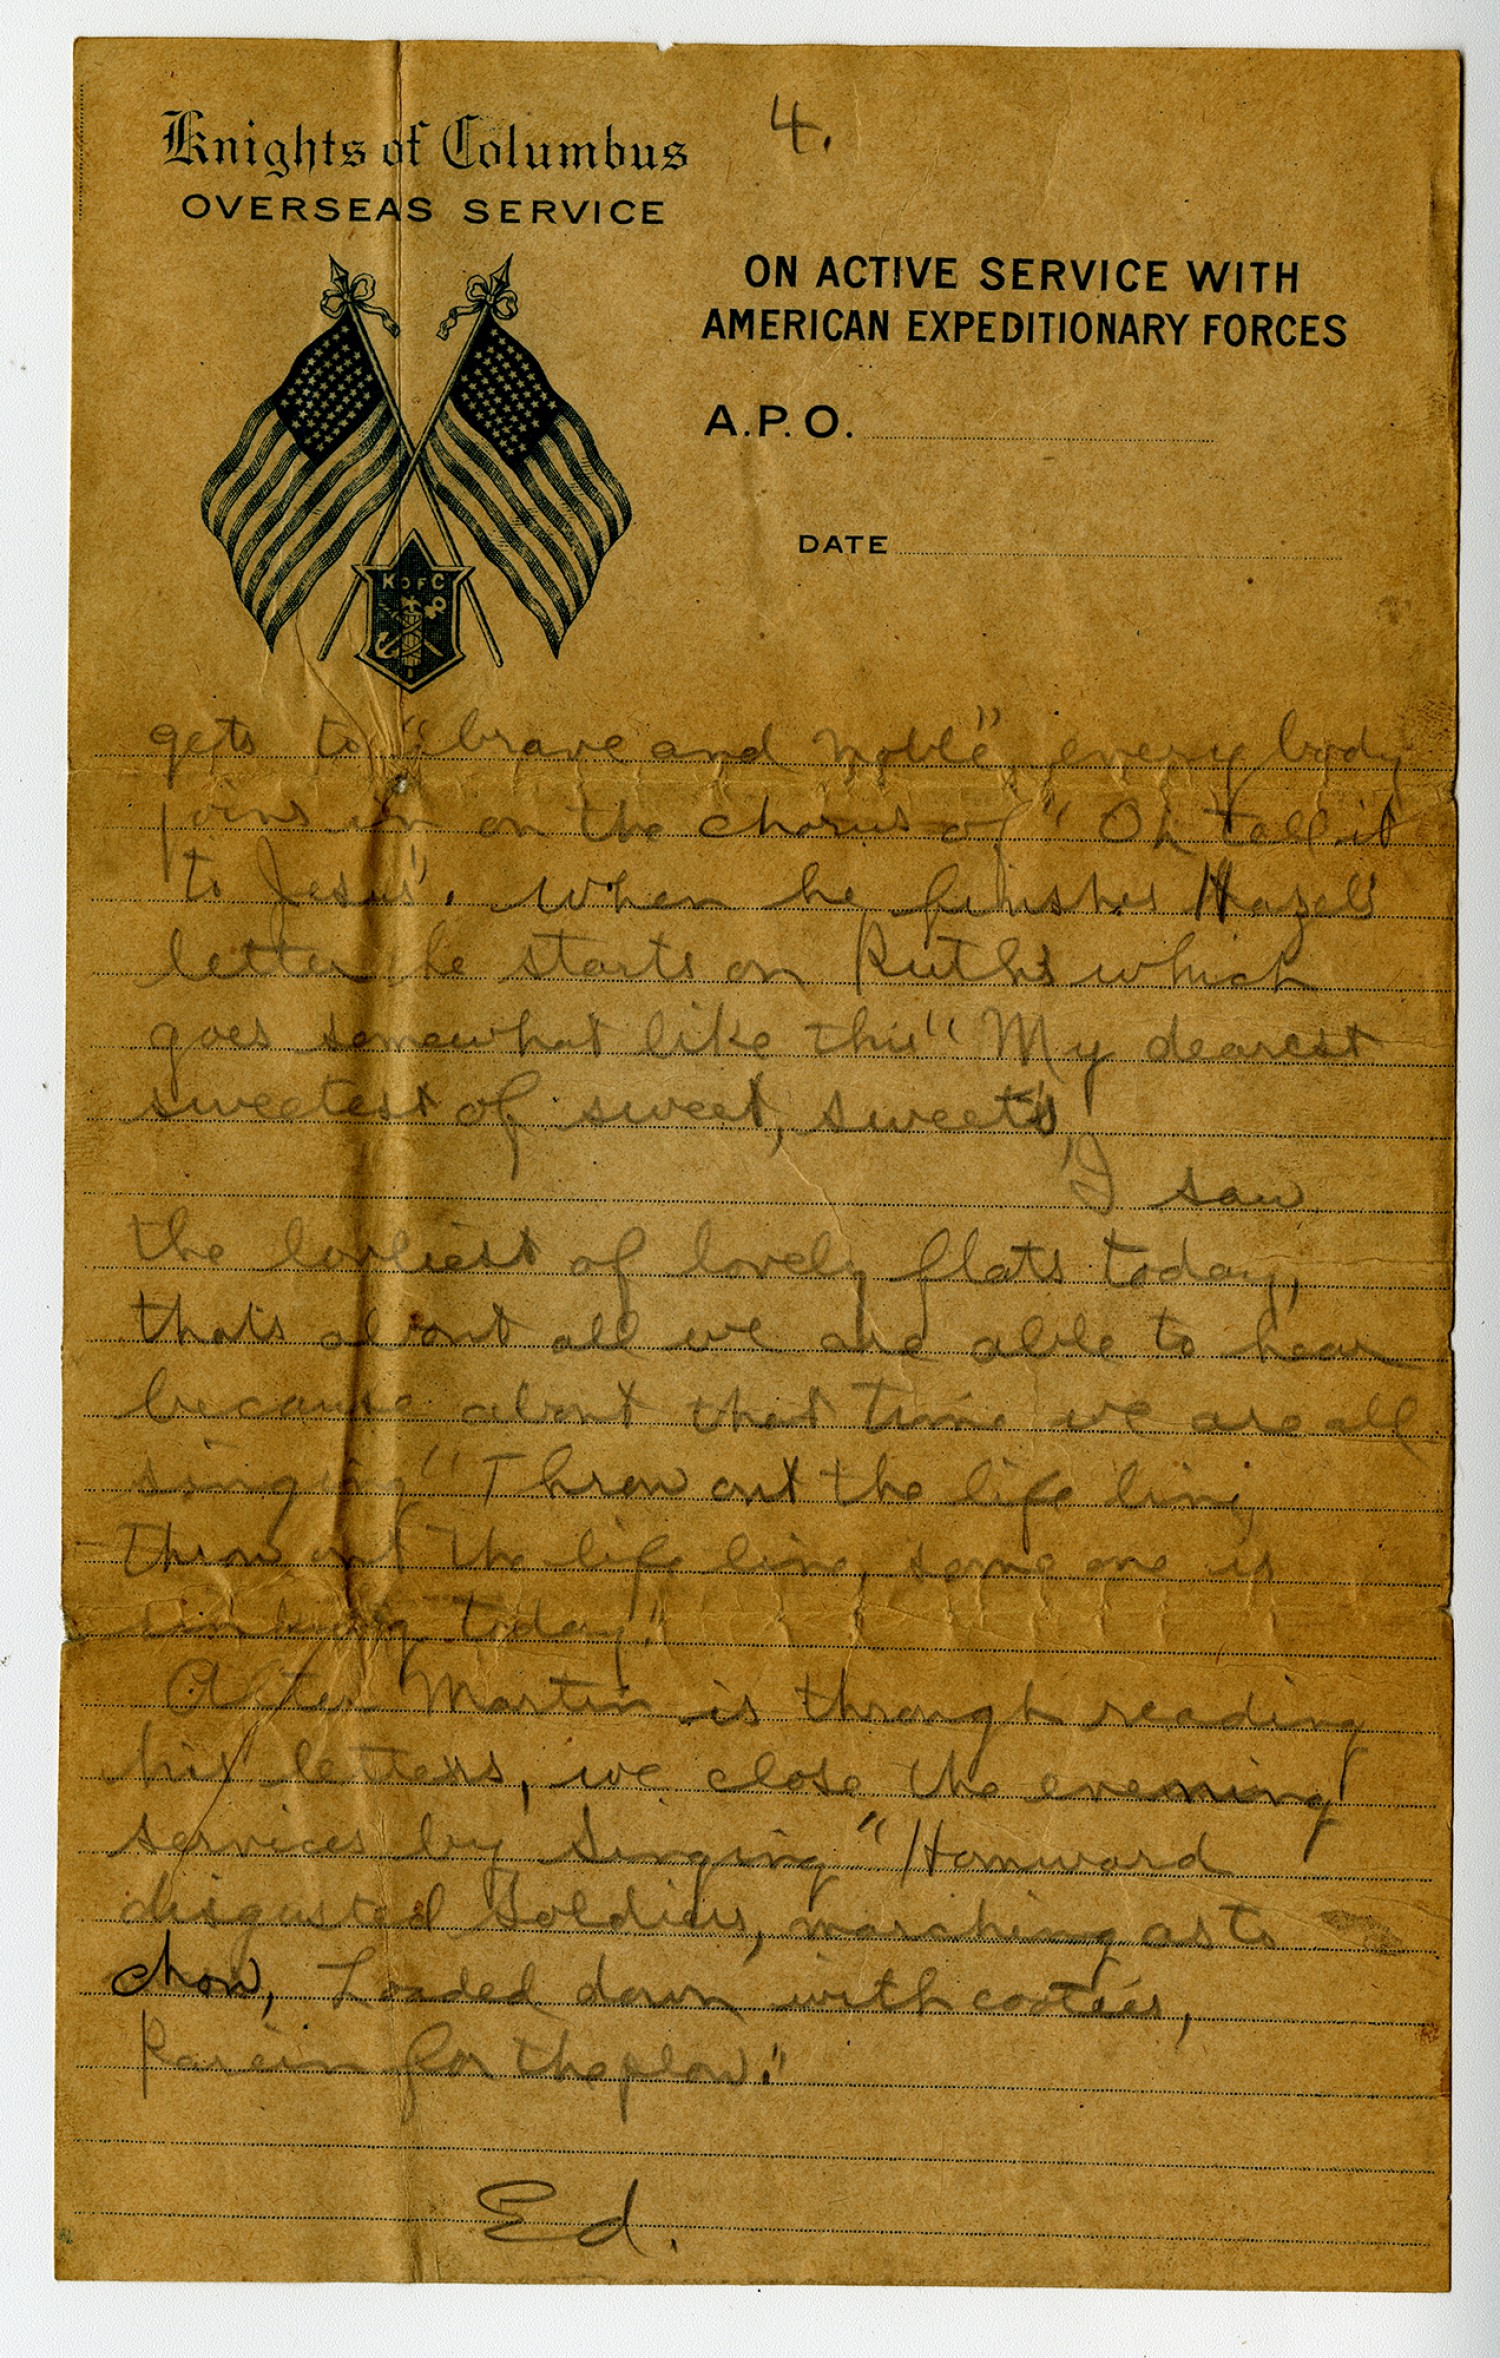 Knights of Columbus
OVERSEAS SERVICE
4.
ON ACTIVE SERVICE WITH
AMERICAN EXPEDITIONARY FORCES
A.P.O.
DATE
K OF C
gets to "brave and noble" every body
joins in on the chorus of "Oh tell it
to Jesus". When he finishes Hazel's
letter he starts on Ruth's which
goes somewhat like this "My dearest
sweetest of sweet, sweets,
I saw
the lovliest of lovely flats today,
thats about all we are able to hear
because about that time we are all
singing "Throw out the life line,
throw out the life line, some one is
sinking today."
After Martin is through reading
his letters, we close the evening
services by singing "Homward
disgusted soldiers, marching as to
chow, Loaded down with cooties,
for the plow."
Ed.